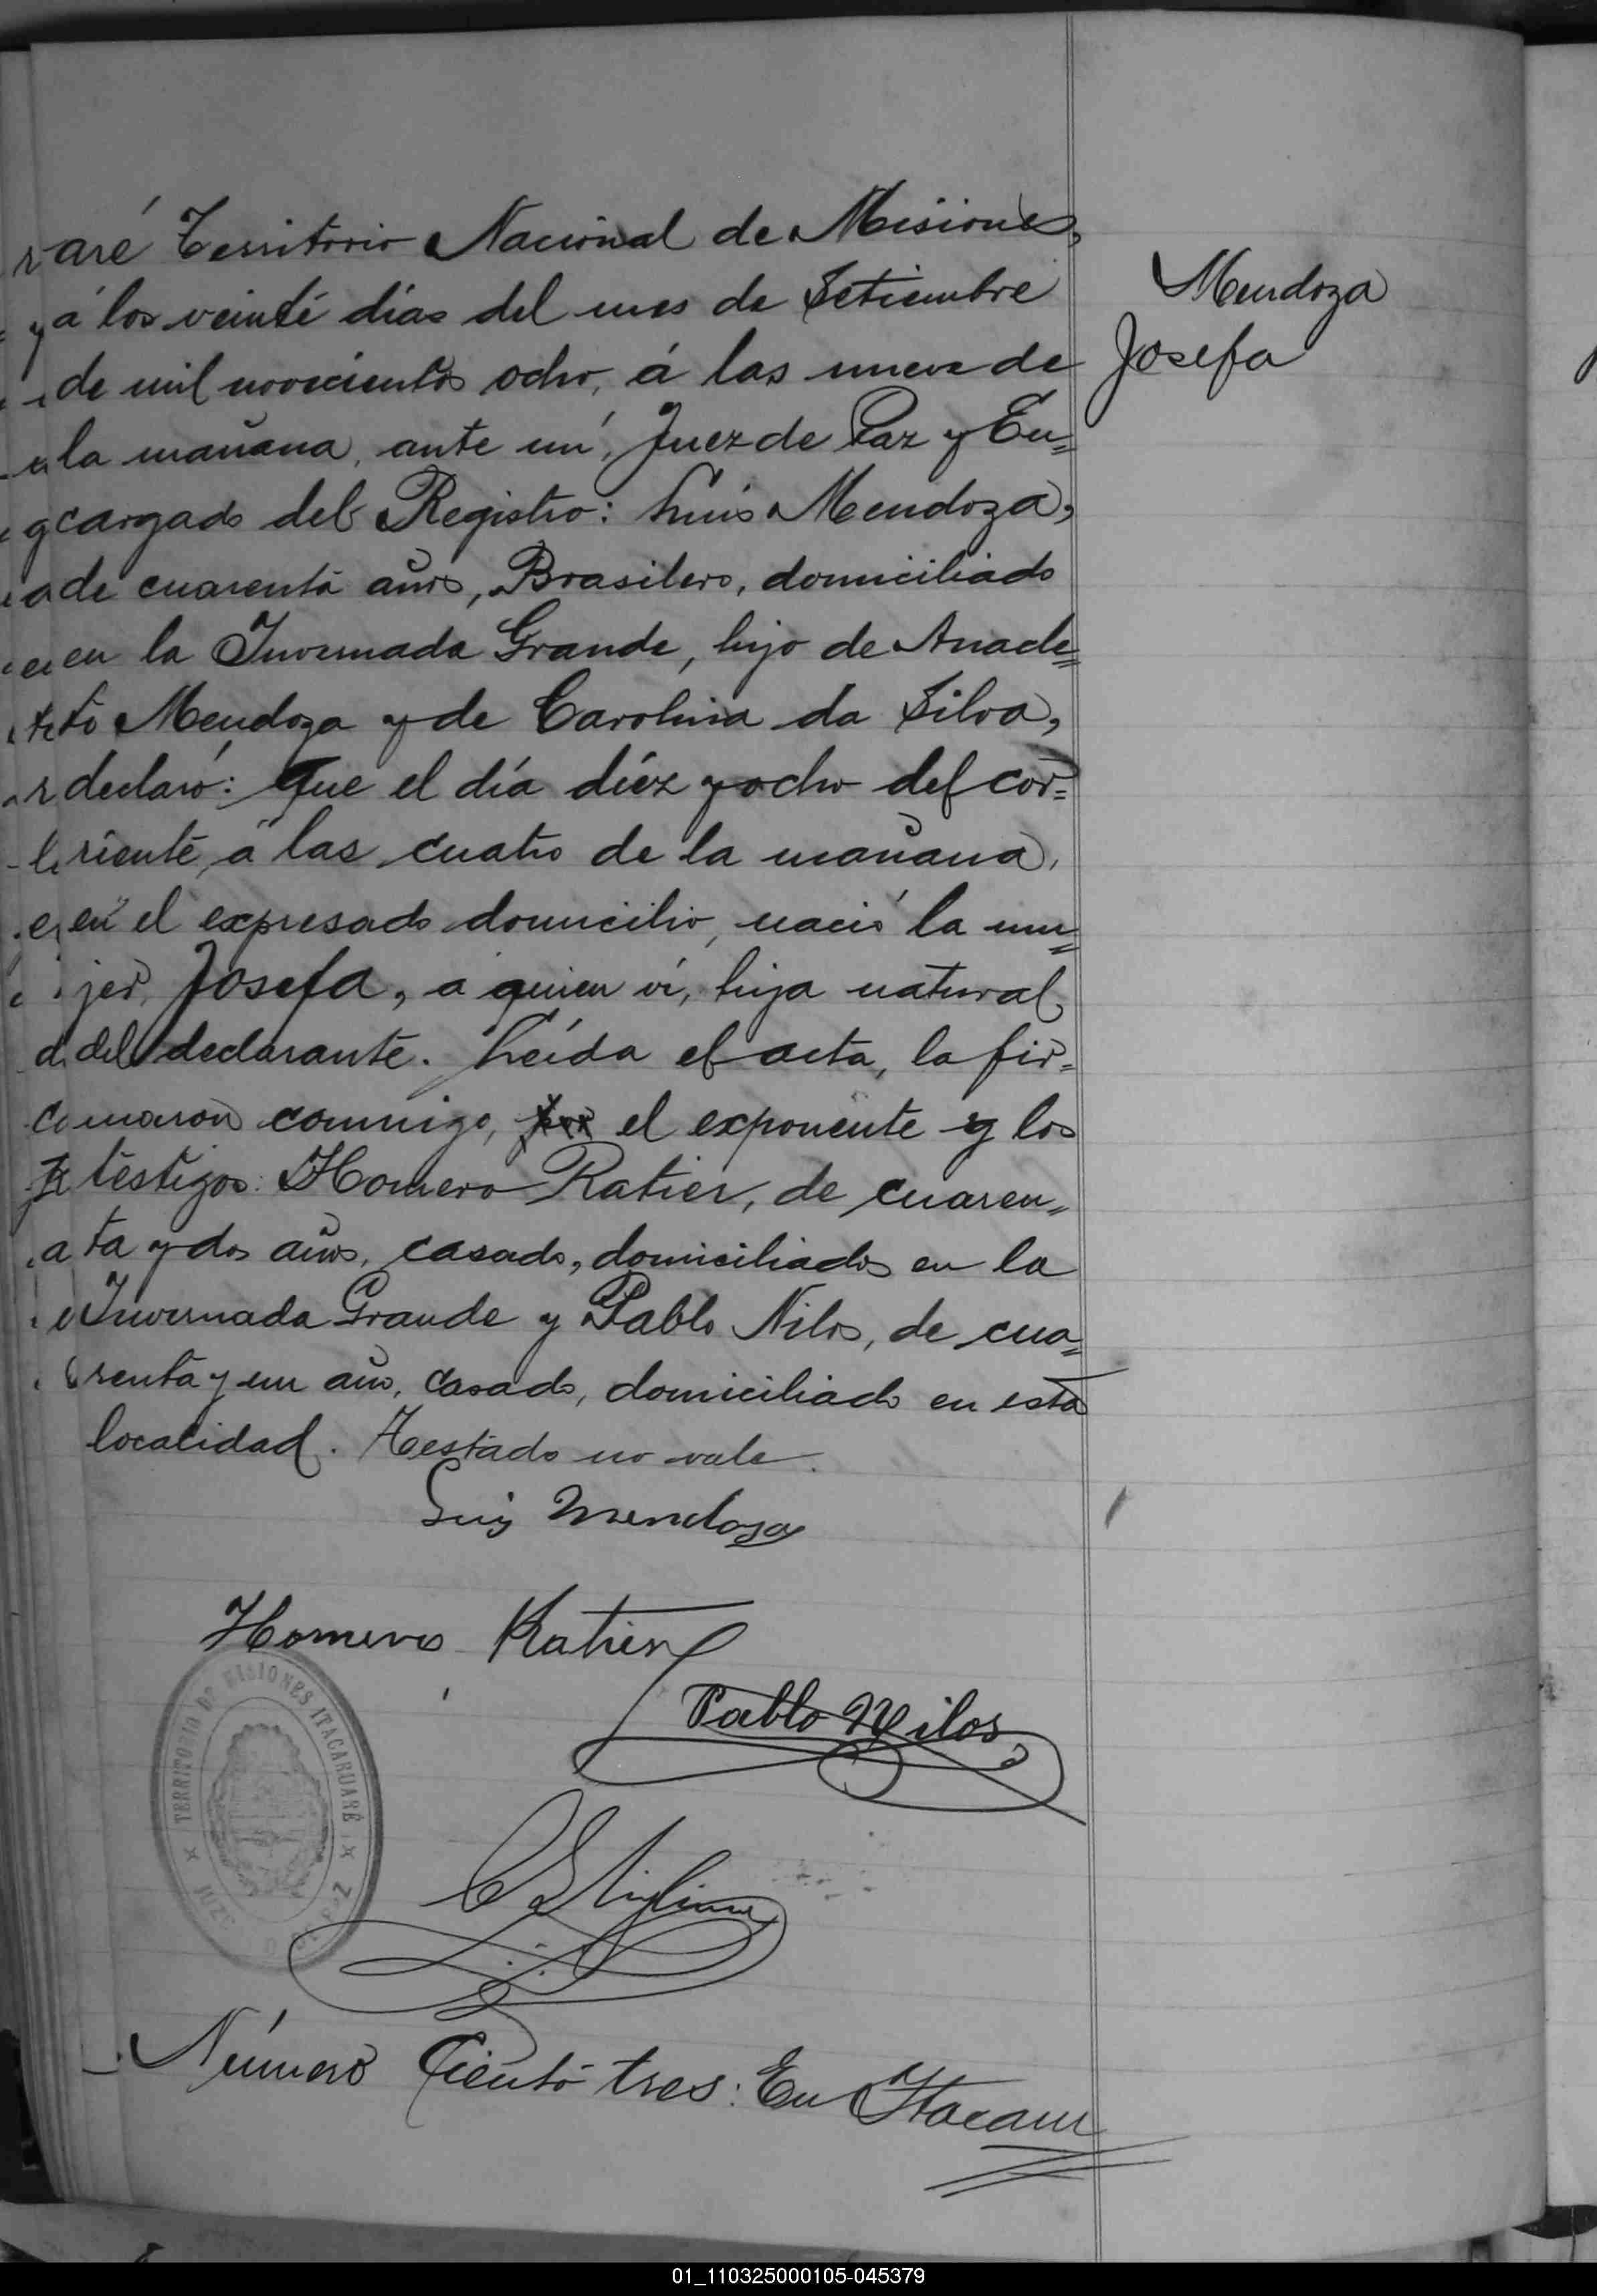 raré Territorio Nacional de Misiones,
á los veinte días del mes de Setiembre
de mil novecientos ocho, á las nueve de
la mañana, ante mí, Juez de Paz y En=
cargado del Registro: Luis Mendoza,
de cuarenta años, Brasilero, domiciliado
en la Invernada Grande, hijo de Anacle=
to Mendoza y de Carolina da Silva,
declaró: Que el día diéz y ocho del cor=
riente, á las cuatro de la mañana,
en el expresado domicilio, nació la mu=
jer, Josefa, a quien ví, hija natural
del declarante. Leída el acta, la fir=
maron conmigo, el exponente y los
testigos: Homero Ratier, de cuaren=
ta y dos años, casado, domiciliados en la
Invernada Grande y Pablo Nilos, de cua=
renta y un año, casado, domiciliado en esta
localidad. Testado no vale.
Luis Mendoza
Homero Ratier
Pablo Nilos
TERRITORIO DE MISIONES ITACARUARÉ
JUZGADO DE PAZ
Número Ciento tres: En Itacaru
Mendoza
Josefa
01_110325000105-045379